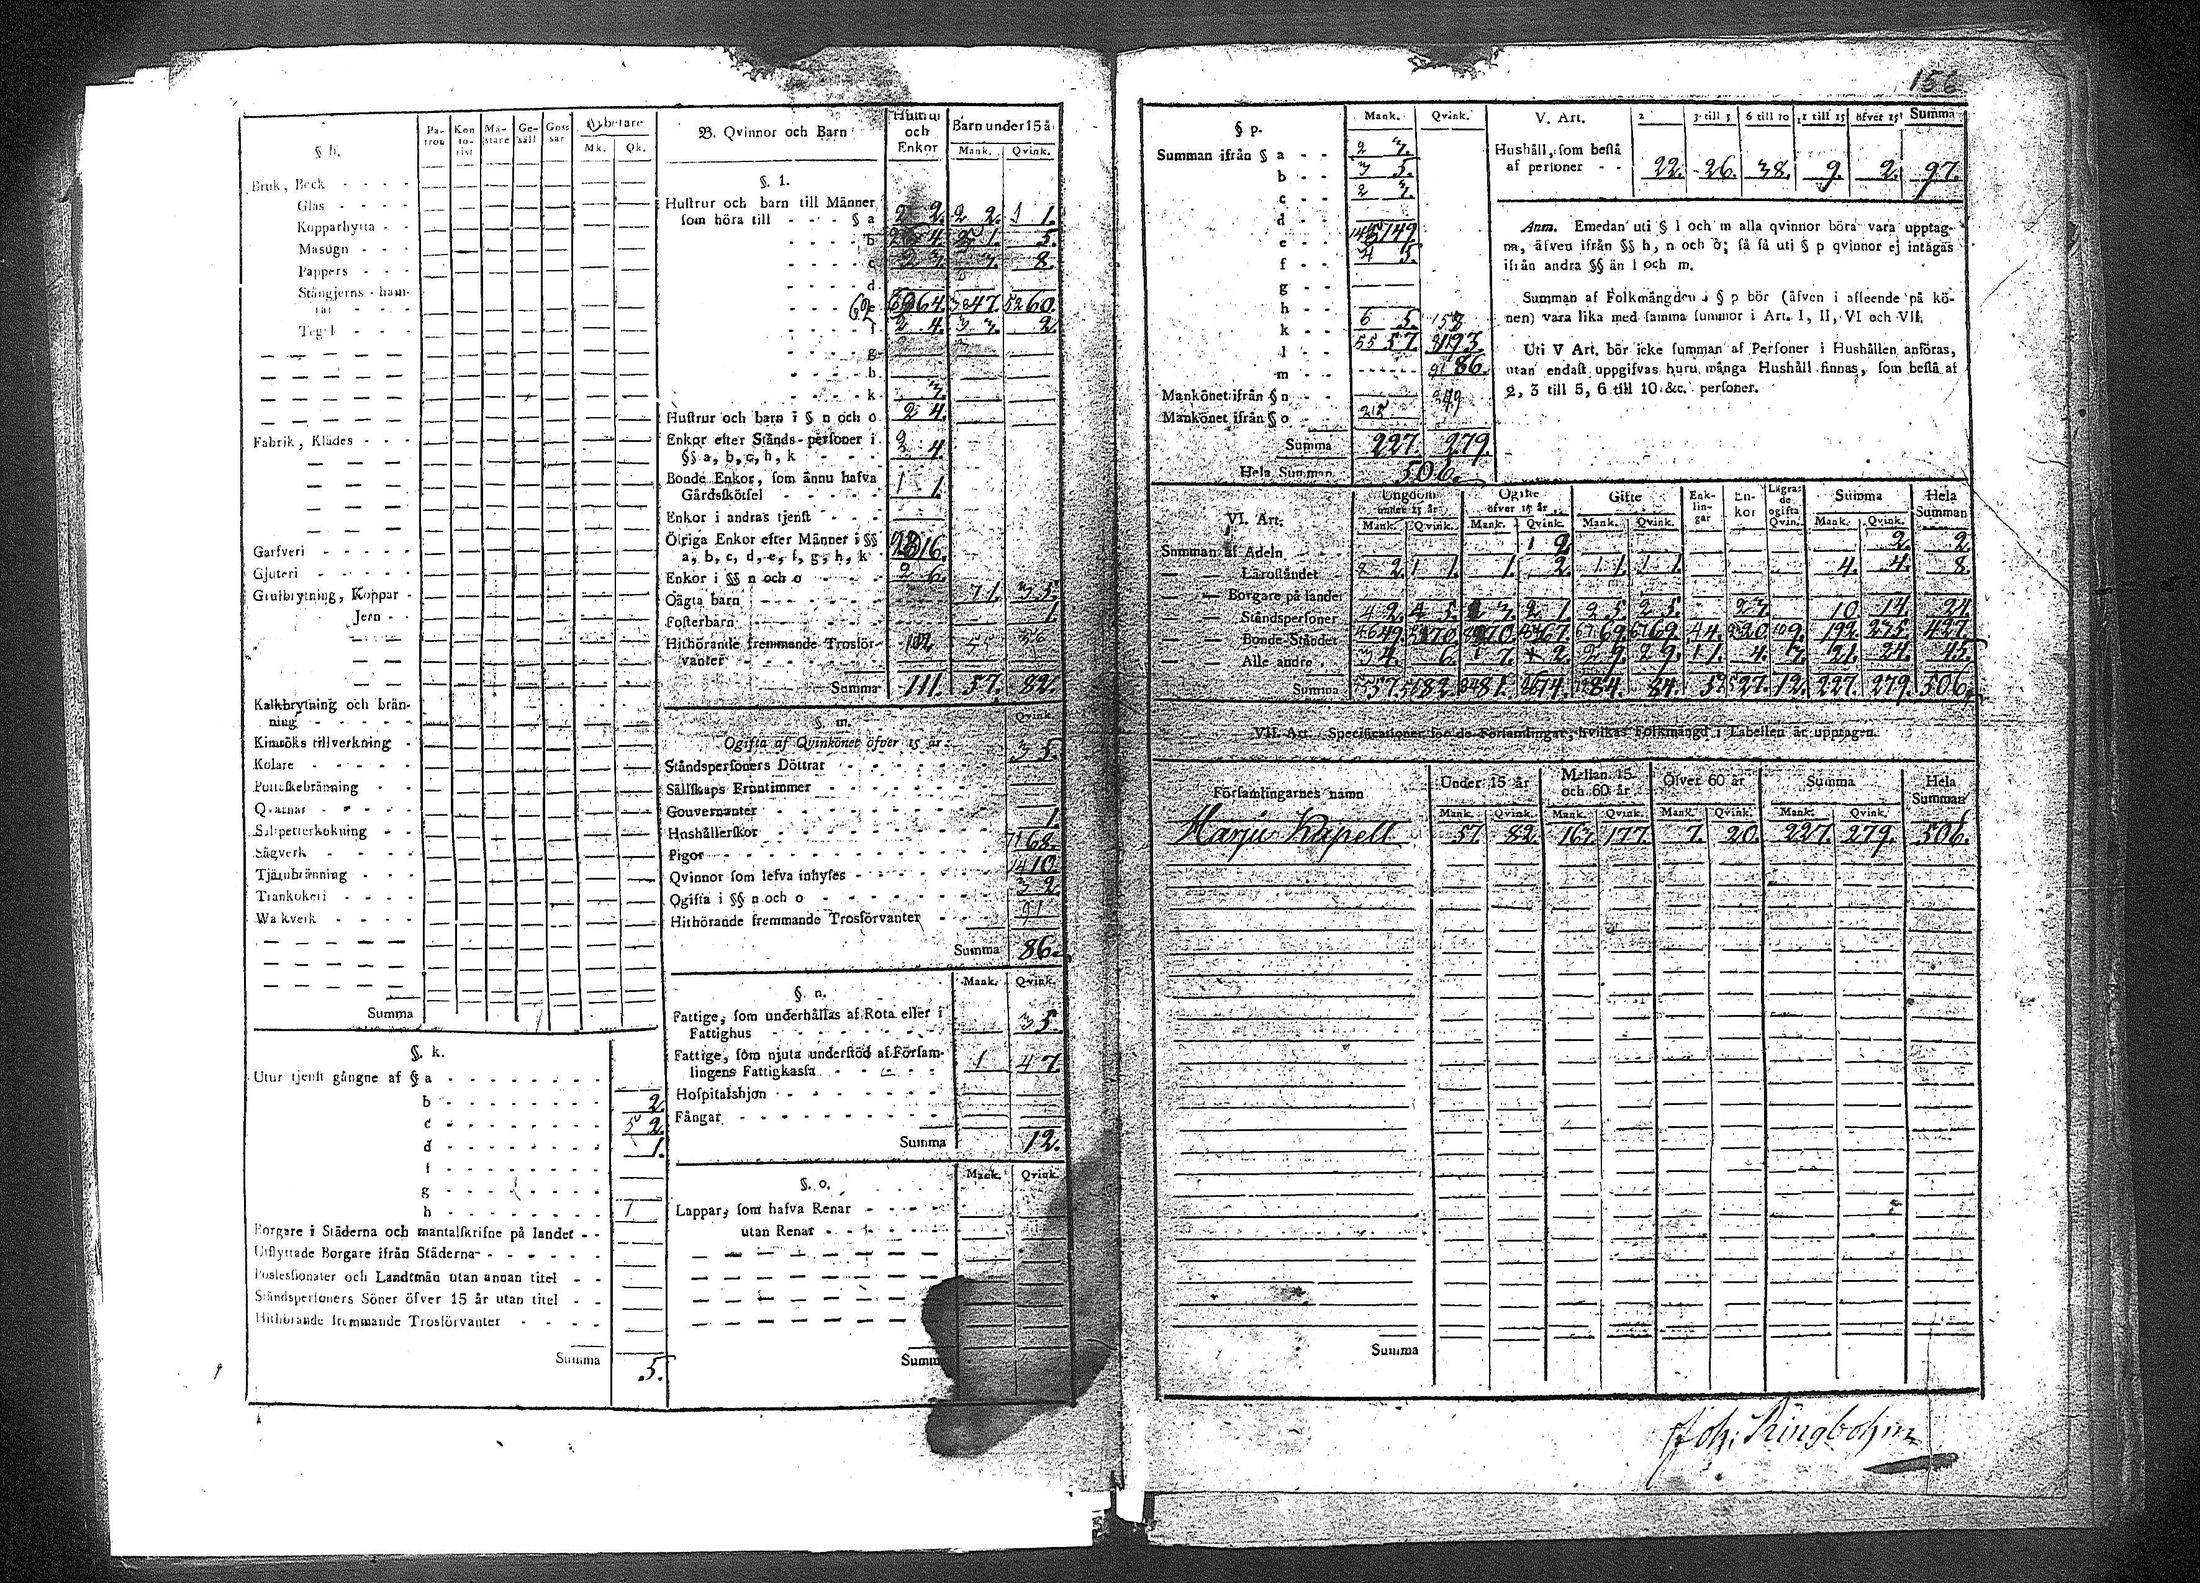 156
§ h.
Pa-tron Kon-to-rist Mä-stare Ge-säll Goss-sar Arbetare
Mk. Qk.
Bruk, Beck
Glas
Kopparhytta
Masugn
Pappers
Stångjerns-ham-
Tegel
Fabrik, Klädes
Garfveri
Gjuteri
Grufbrytning, Koppar
Jern
Kalkbrytning och brän-
ning
Kimröks tillverkning
Kolare
Pottaskebränning
Qvarnar
Salpetterkokning
Sågverk
Tjärubränning
Trankokeri
Walkverk
Summa
§. k.
Utur tjenst gångne af § a
b 2.
c 5 2.
d 1.
f
g
h 1
Borgare i Städerna och mantalskrifne på landet
Utflyttade Borgare ifrån Städerna
Possessionater och Landtmän utan annan titel
Ståndspersoners Söner öfver 15 år utan titel
Hithörande fremmande Trosförvanter
Summa 5.
B. Qvinnor och Barn Hustrur och Enkor Barn under 15 å
Mank. Qvink.
§. l.
Hustrur och barn till Männer
som höra till § a 2 2. 2 2. 1 1.
b 4 1. 5.
c 8.
d
e 62 64. 47. 52 60.
f 2 4. 2
g
h
k
Hustrur och barn i § n och o 2 4.
Enkor efter Stånds-personer i
§§ a, b, c, h, k 2 4
Bonde Enkor, som ännu hafva
Gårdsskötsel 1 1.
Enkor i andras tjenst
Öfriga Enkor efter Männer i §§
a, b, c, d, e, f, g, h, k 16.
Enkor i §§ n och o 2 6.
Oägta barn 1. 3 5.
Fosterbarn 1.
Hithörande fremmande Trosför-
vanter
Summa 111. 57. 82.
§. m. Qvink.
Ogifta af Qvinkönet öfver 15 år:
Ståndspersoners Döttrar 3 5.
Sällskaps Fruntimmer
Gouvernanter
Hushållerskor 1.
Pigor 71 68.
Qvinnor som lefva inhyses 14 10.
Ogifta i §§ n och o 3 2.
Hithörande fremmande Trosförvanter 91
Summa 86.
§. n. Mank. Qvink.
Fattige, som underhållas af Rota eller i
Fattighus 3 5.
Fattige, som njuta understöd af Försam-
lingens Fattigkassa 1 4 7
Hospitalshjon
Fångar
Summa 12.
§. o. Mank. Qvink.
Lappar, som hafva Renar
utan Renar
Summ
§ p. Mank. Qvink.
Summan ifrån § a 2
b 3 5.
c 2
d
e 149
f 4 5.
g
h
k 6 5.
l 55 57. 193.
m 91 86.
Mankönet ifrån § n
Mankönet ifrån § o
Summa 227. 279.
Hela Summan 506.
V. Art. 2 3 till 5 6 till 10 11 till 15 öfver 15 Summa
Hushåll, som bestå
af personer 22. 26. 38. 9. 2. 97.
Anm. Emedan uti § l och m alla qvinnor böra vara upptag-
na, äfven ifrån §§ h, n och o; så få uti § p qvinnor ej intagas
ifrån andra §§ än l och m.
Summan af Folkmängden i § p bör (äfven i afseende på kö-
nen) vara lika med samma summor i Art. I, II, VI och VII.
Uti V Art. bör icke summan af Personer i Hushållen anföras,
utan endast uppgifvas huru många Hushåll finnas, som bestå af
2, 3 till 5, 6 till 10 &c. personer.
VI. Art. Ungdom under 15 år Ogifte öfver 15 år Gifte Enk-lin-gar En-kor Lägra-de ogifta Qvin. Summa Hela Summan
Mank. Qvink. Mank. Qvink. Mank. Qvink. Mank. Qvink.
Summan af Adeln 1 2. 2. 2.
Läroståndet 2. 1 1. 1. 2. 1 1. 1 1. 4. 4. 8.
Borgare på landet
Ståndspersoner 4 2. 4 5. 2 1. 2 5. 2 5. 10 14. 24.
Bonde-Ståndet 46 49. 70. 70. 67. 67 69. 67 69. 4 4. 20. 9. 192. 235. 427.
Alle andre 3 4. 6. 7. 2. 2 9. 2 9. 1 1. 4. 21. 24. 45.
Summa 57. 82. 81. 74. 84. 84. 5 27. 12. 227. 279. 506.
VII. Art. Specificationer för de Församlingar, hvilkas Folkmängd i Tabellen är upptagen.
Församlingarnes namn Under 15 år Mellan 15 och 60 år Öfver 60 år Summa Hela Summan
Mank. Qvink. Mank. Qvink. Mank. Qvink. Mank. Qvink.
Harju Kapell 57. 82. 163. 177. 7. 20. 227. 279. 506.
Summa
Joh. Ringbohm